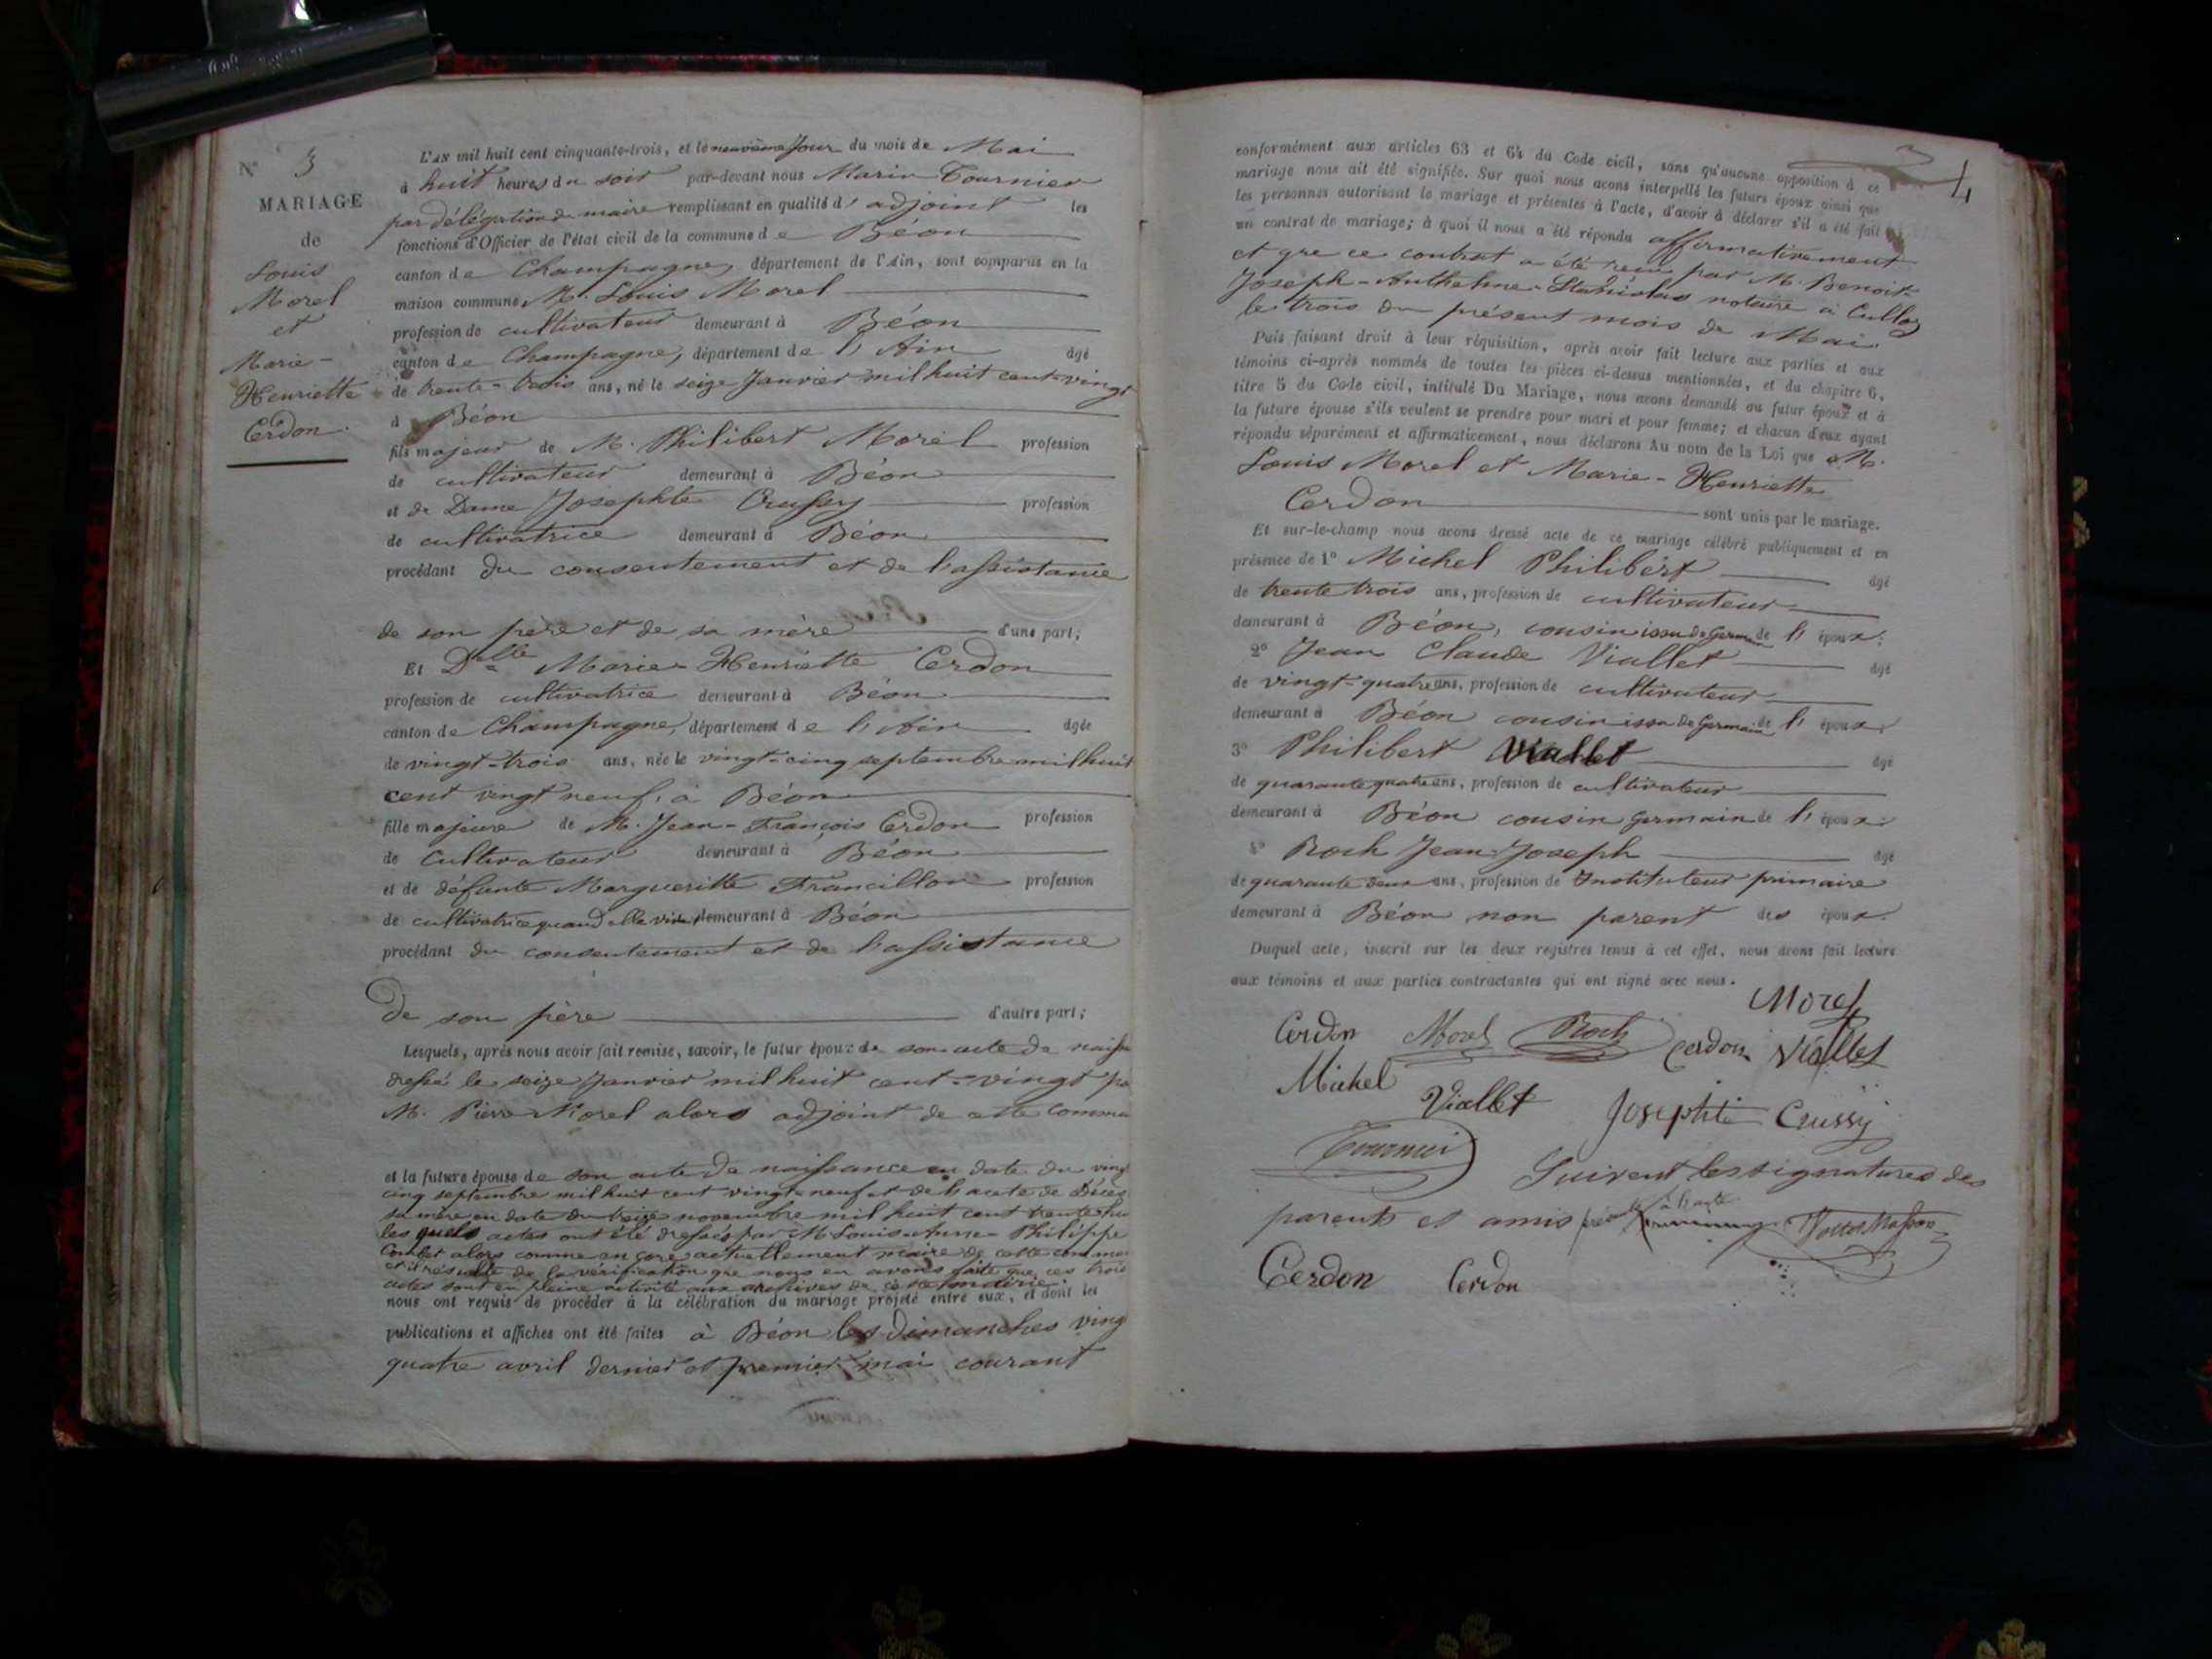 N° 3
MARIAGE
de
Louis
Morel
et
Marie-
Henriette
Cerdon.
L'AN mil huit cent cinquante-trois, et le neuvième Jour du mois de Mai
à huit heures du soir par-devant nous Marin Tournier
par délégation du maire remplissant en qualité d'adjoint les
fonctions d'Officier de l'état civil de la commune de Béon
canton de Champagne, département de l'Ain, sont comparus en la
maison commune M. Louis Morel
profession de cultivateur demeurant à Béon
canton de Champagne, département de l'Ain âgé
de trente-trois ans, né le seize Janvier mil huit cent vingt
à Béon
fils majeur de M. Philibert Morel profession
de cultivateur demeurant à Béon
et de Dame Josephte Crussy profession
de cultivatrice demeurant à Béon
procédant du consentement et de l'assistance
de son père et de sa mère d'une part;
Et Delle Marie-Henriette Cerdon
profession de cultivatrice demeurant à Béon
canton de Champagne, département de l'Ain âgée
de vingt-trois ans, née le vingt-cinq septembre mil huit
cent vingt neuf, à Béon
fille majeure de M. Jean-François Cerdon profession
de cultivateur demeurant à Béon
et de défunte Margueritte Francillon profession
de cultivatrice quand elle vivait demeurant à Béon
procédant du consentement et de l'assistance
De son père d'autre part;
Lesquels, après nous avoir fait remise, savoir, le futur époux de son acte de naiss
dressé le seize Janvier mil huit cent-vingt pa
M. Pierre Morel alors adjoint de cette commu
et la future épouse de son acte de naissance en date du ving
cinq septembre mil huit cent vingt neuf et de l'acte de Décès
sa mère en date du treize novembre mil huit cent trente hu
lesquels actes ont été dressés par M. Louis-Anne-Philippe
Combet alors comme encore actuellement maire de cette commu
et il résulte de la vérification que nous en avons faite que ces trois
actes sont en pleine activité aux archives de cette mairie.
nous ont requis de procéder à la célébration du mariage projeté entre eux, et dont les
publications et affiches ont été faites à Béon les dimanches ving
quatre avril dernier et premier mai courant
4
conformément aux articles 63 et 64 du Code civil, sans qu'aucune opposition à ce
mariage nous ait été signifiée. Sur quoi nous avons interpellé les futurs époux ainsi que
les personnes autorisant le mariage et présentes à l'acte, d'avoir à déclarer s'il a été fait
un contrat de mariage; à quoi il nous a été répondu affirmativement
et que ce contrat a été reçu par M. Benoit-
Joseph-Anthelme-Stanislas notaire à Culloz
le trois du présent mois de Mai.
Puis faisant droit à leur réquisition, après avoir fait lecture aux parties et aux
témoins ci-après nommés de toutes les pièces ci-dessus mentionnées, et du chapitre 6,
titre 5 du Code civil, intitulé Du Mariage, nous avons demandé au futur époux et à
la future épouse s'ils veulent se prendre pour mari et pour femme; et chacun d'eux ayant
répondu séparément et affirmativement, nous déclarons Au nom de la Loi que M.
Louis Morel et Marie-Henriette
Cerdon sont unis par le mariage.
Et sur-le-champ nous avons dressé acte de ce mariage célébré publiquement et en
présence de 1° Michel Philibert âgé
de trente trois ans, profession de cultivateur
demeurant à Béon, cousin issu de Germain de l'époux;
2° Jean Claude Viallet âgé
de vingt-quatre ans, profession de cultivateur
demeurant à Béon cousin issu de Germain de l'époux;
3° Philibert Viallet âgé
de quarante quatre ans, profession de cultivateur
demeurant à Béon cousin germain de l'époux;
4° Roch Jean Joseph âgé
de quarante deux ans, profession de Instituteur primaire
demeurant à Béon non parent des époux.
Duquel acte, inscrit sur les deux registres tenus à cet effet, nous avons fait lecture
aux témoins et aux parties contractantes qui ont signé avec nous.
Morel
Cerdon Morel Roch Cerdon Viallet
Michel Viallet Josephte Crussy
Tournier
Suivent les signatures des
parents et amis
Cerdon Cerdon